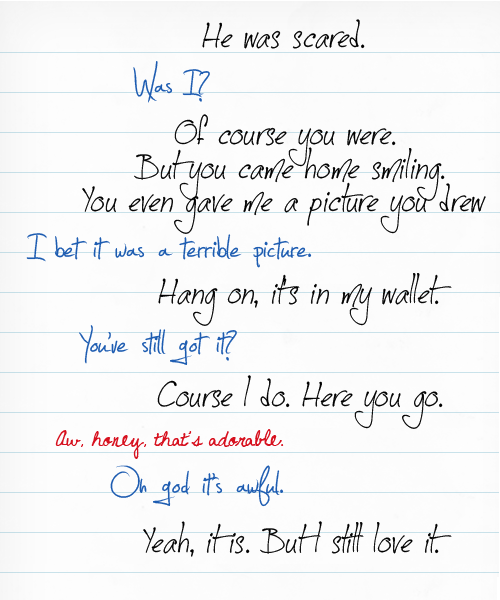 He was scared.
Was I?
Of course you were.
But you came home smiling.
You even gave me a picture you drew
I bet it was a terrible picture.
Hang on, it's in my wallet.
You've still got it?
Course I do. Here you go.
Aw, honey, that's adorable.
Oh god it's awful.
Yeah, it is. But I still love it.